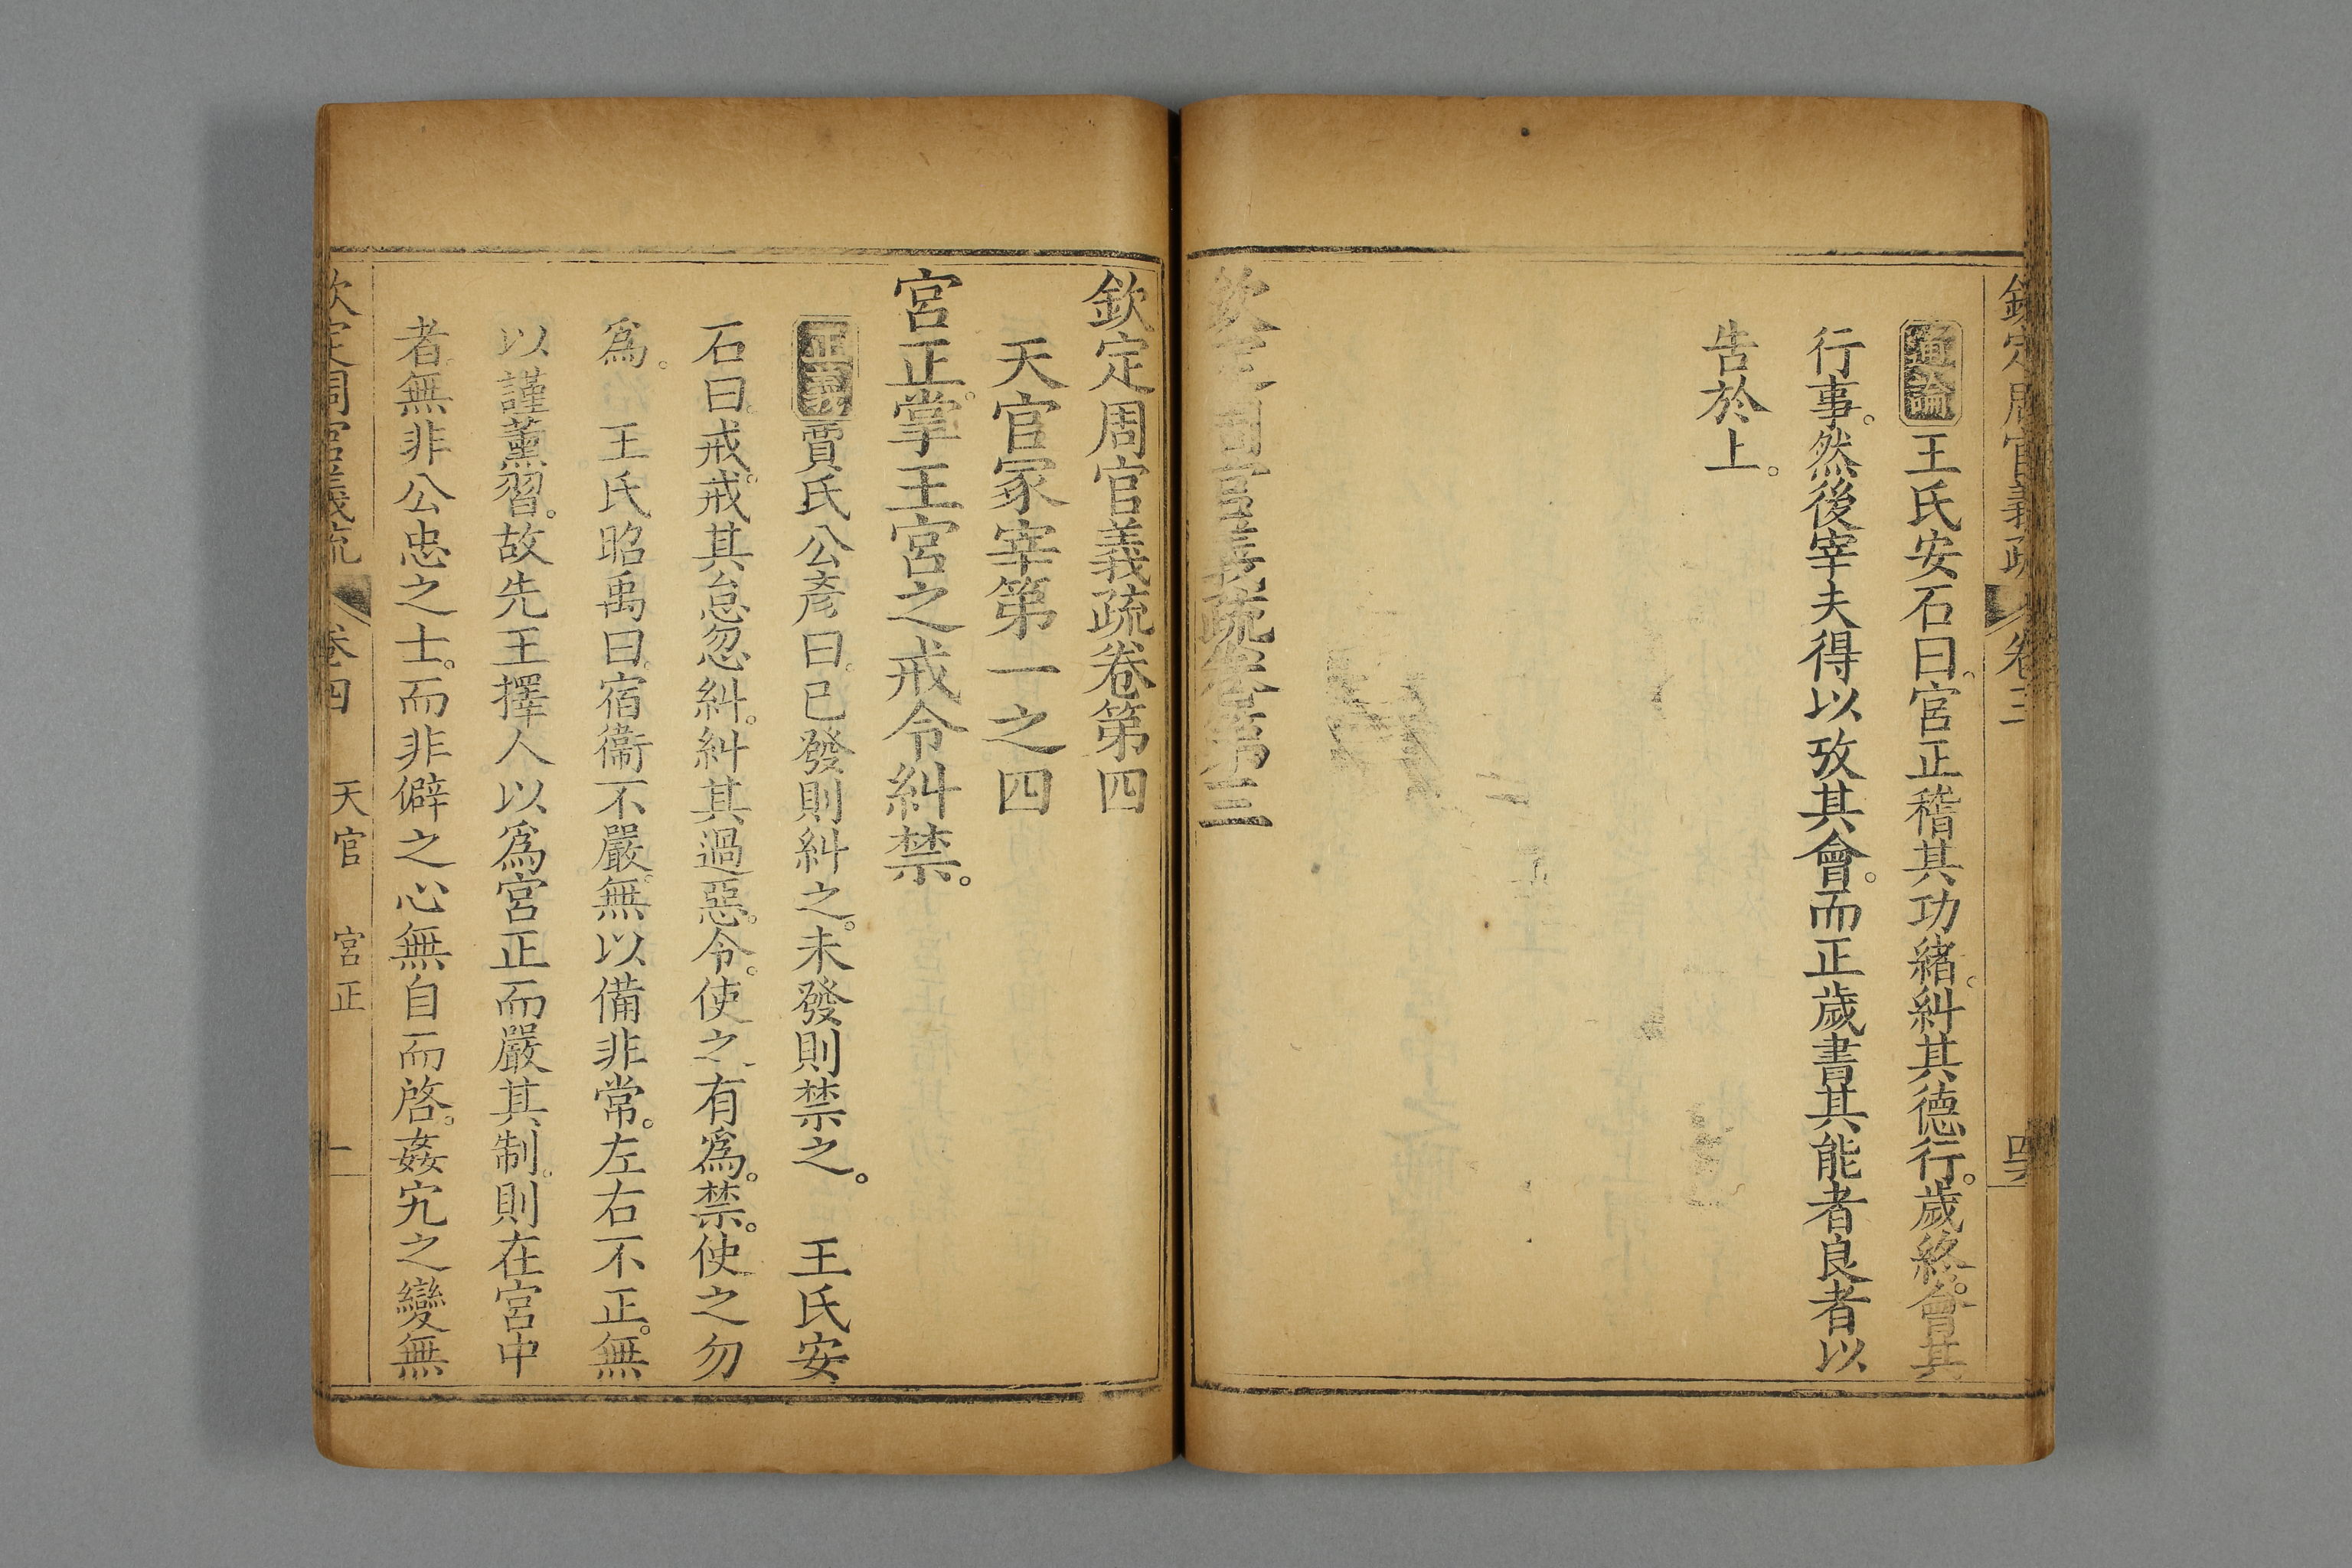 欽定周官義疏 卷三 四六
通論王氏安石曰。官正稽其功緒。糾其德行。歲終。會其
行事。然後宰夫得以攷其會。而正歲書其能者良者以
告於上。
欽定周官義疏卷第三
欽定周官義疏卷第四
天官冢宰第一之四
宮正。掌王宮之戒令糾禁。
正義賈氏公彥曰。已發則糾之。未發則禁之。 王氏安
石曰。戒。戒其怠忽。糾。糾其過惡。令。使之有爲。禁。使之勿
爲。 王氏昭禹曰。宿衞不嚴。無以備非常。左右不正。無
以謹薰習。故先王擇人以爲宮正而嚴其制。則在宮中
者。無非公忠之士。而非僻之心無自而啓。姦宄之變無
欽定周官義疏 卷四 天官 宮正 一